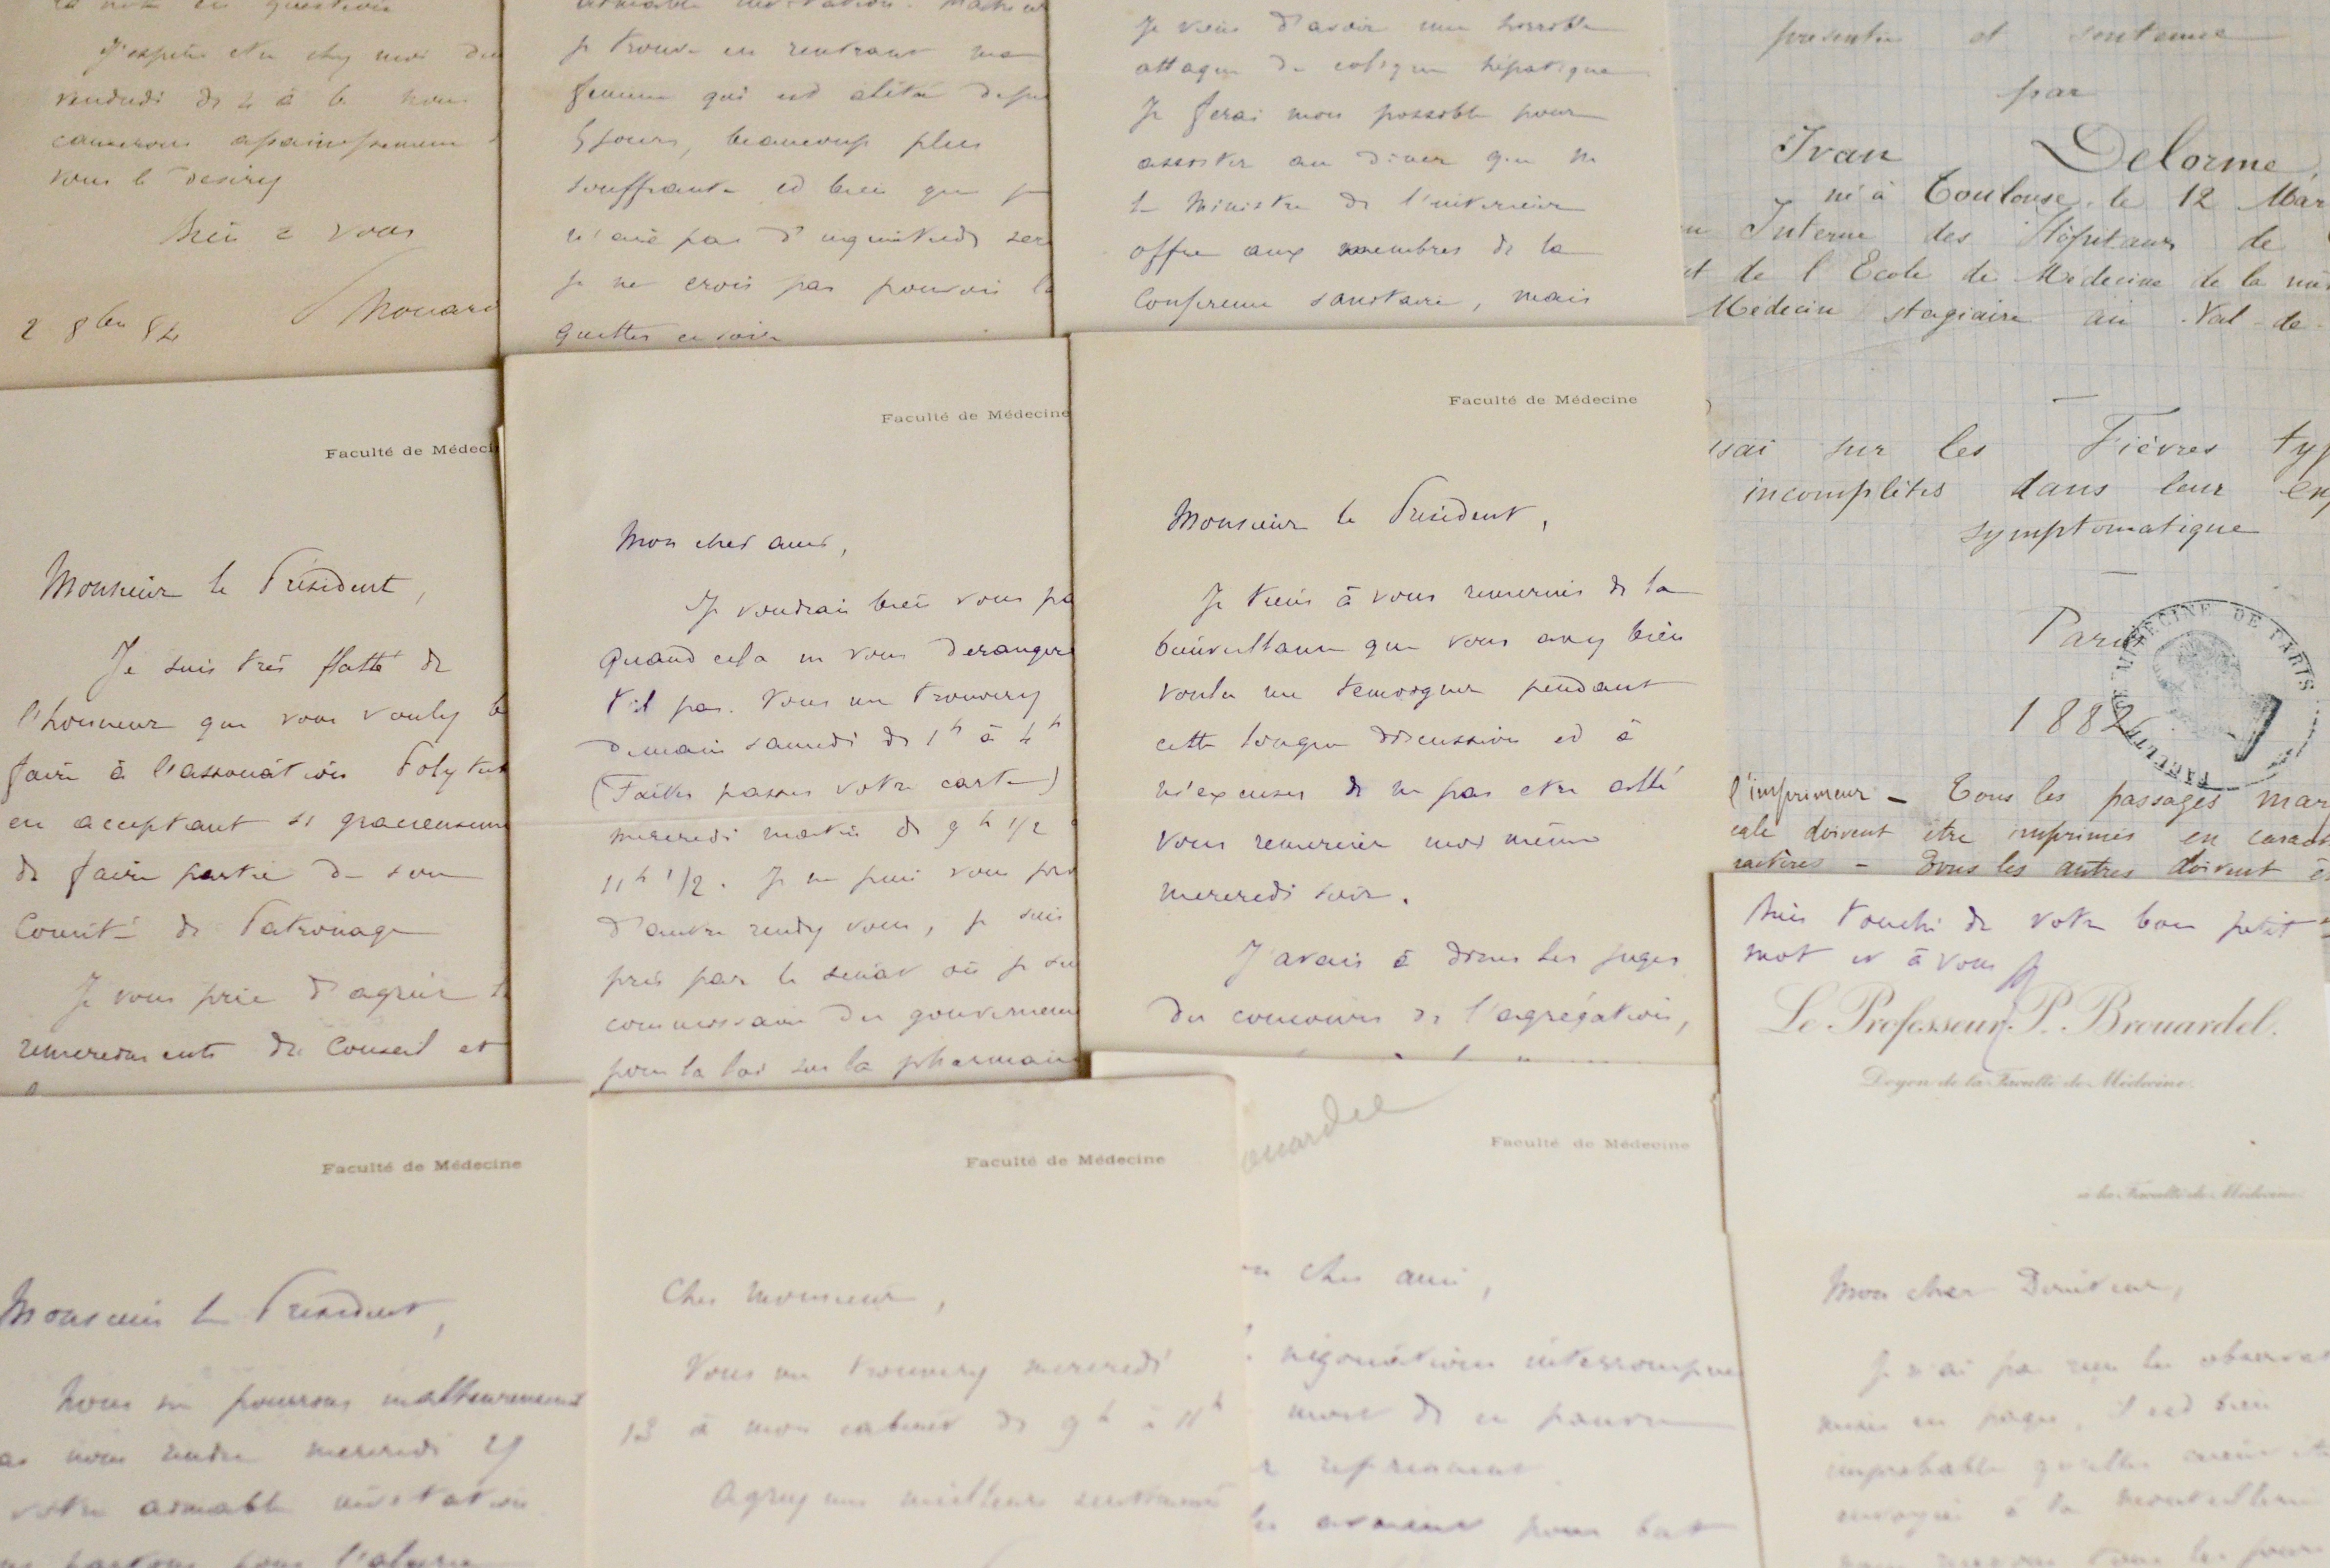 J'espère être chez moi
vendredi de 4 à 6 nous
causerons
vous le désirez
bien à vous
2 8bre 84
je trouve en rentrant ma
femme qui est alitée
5 jours, beaucoup plus
souffrante et bien que je
n'aie pas d'inquiétude
je ne crois pas pouvoir la
quitter ce soir
Je viens d'avoir une horrible
attaque de colique hépatique
Je ferai mon possible pour
assister au diner que M
le Ministre de l'intérieur
offre aux membres de la
Conference sanitaire, mais
présentée et soutenue
par
Ivan Delorme,
né à Toulouse, le 12 Mar
Interne des Hôpitaux de
et de l'Ecole de Médecine de la
Médecin stagiaire au Val-de-
sur les Fièvres ty
incomplètes dans leur
symptomatique
Paris
1882
MÉDECINE DE PARIS
FACULTÉ
l'imprimeur - Tous les passages mar
doivent être imprimés en
Tous les autres doivent
Faculté de Médeci
Monsieur le Président,
Je suis très flatté de
l'honneur que vous voulez b
faire à l'association Polytec
en acceptant si gracieuseme
de faire partie de son
Comité de Patronage
Je vous prie d'agréer
remerciements du Conseil et
Faculté de Médecine
Mon cher ami,
Je voudrais bien vous
Quand cela ne vous derangera
t'il pas. Vous me trouverez
demain samedi de 1h à 4h
(Faites passer votre carte)
mercredi matin de 9h 1/2
11h 1/2. Je ne puis vous
d'autre rendez vous, je suis
pris par le senat où je suis
commissaire du gouverneme
pour la loi sur la pharmacie
Faculté de Médecine
Monsieur le Président,
Je tiens à vous remercier de la
bienveillance que vous avez bien
voulu me temoigner pendant
cette longue discussion et à
m'excuser de ne pas etre allé
vous remercier moi même
mercredi soir.
J'avais à diner les juges
du concours de l'agrégation,
touché de votre bon petit
mot et à vous
Le Professeur P. Brouardel.
Doyen de la Faculté de Médecine.
à la Faculté de Médecine
Faculté de Médecine
Monsieur le Président,
Nous ne pourrons malheureusement
nous rendre mercredi 29
votre aimable invitation
partons pour
Faculté de Médecine
Cher Monsieur,
Vous me trouverez mercredi
13 à mon cabinet de 9h à 11h
Agréez mes meilleurs sentiments
ouardel
Faculté de Médecine
cher ami,
négociations interrompues
mort de ce pauvre
pour
Mon cher Docteur,
Je n'ai pas reçu les
il est bien
improbable qu'elles aient
à la